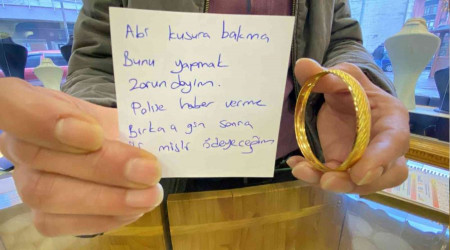 Abi kusura bakma
Bunu yapmak
zorundayım.
Polise haber verme
Birkaç gün sonra
misli ödeyeceğim